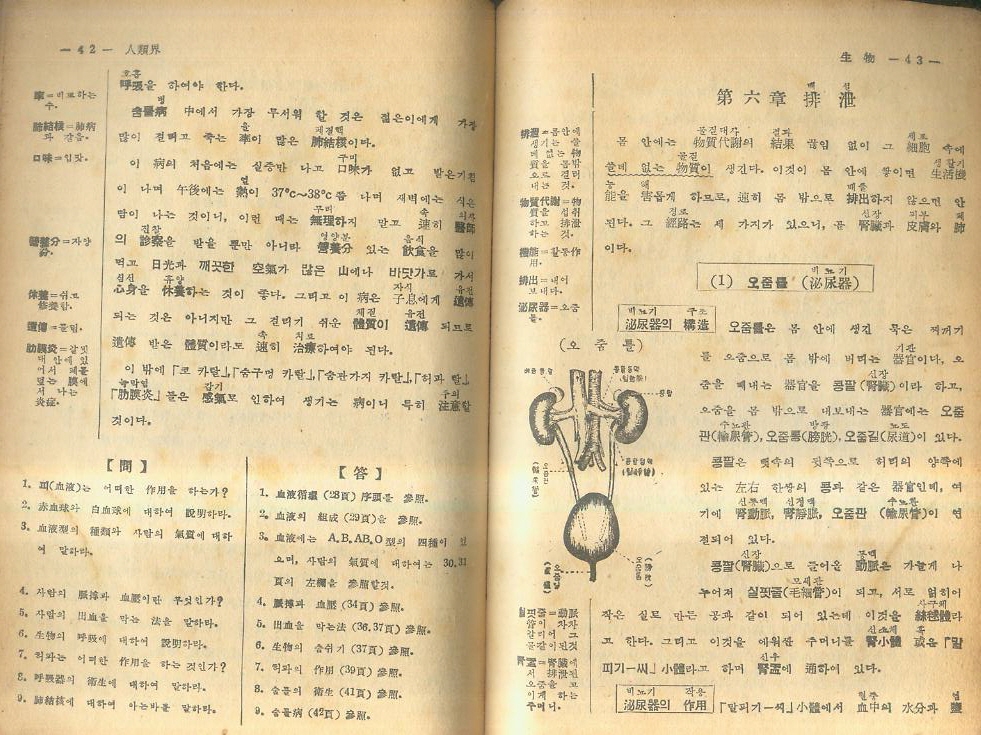 — 42 — 人類界
率=비교하는
수.
肺結核=肺病
과 같음.
口味=입맛.
營養分=자양
분.
休養=쉬고
修養함.
遺傳=물림.
肋膜炎=갈빗
대 안에 있
어서 폐를
덮는 膜에
서 나는
炎症.
호흡
呼吸을 하여야 한다.
병
含嗽病 中에서 가장 무서워 할 것은 젊은이에게 가장
율 폐결핵
많이 걸리고 죽는 率이 많은 肺結核이다.
구미
이 病의 처음에는 실증만 나고 口味가 없고 밭은기침
열
이 나며 午後에는 熱이 37°C~38°C쯤 나며 재벽에는 식은
무리 속 의사
땀이 나는 것이니, 이런 때는 無理하지 말고 速히 醫師
진찰 영양분 음식
의 診察을 받을 뿐만 아니라 營養分 있는 飮食을 많이
먹고 日光과 깨끗한 空氣가 많은 山에나 바닷가로 가서
심신 휴양 자식 유전
心身을 休養하는 것이 좋다. 그리고 이 病은 子息에게 遺傳
체질 유전
되는 것은 아니지만 그 걸리기 쉬운 體質이 遺傳 되므로
속 치료
遺傳 받은 體質이라도 速히 治療하여야 된다.
이 밖에 「코 카탈」,「숨구멍 카탈」,「숨관가지 카탈」,「허파 탈」,
늑막염 감기 주의
「肋膜炎」들은 感氣로 인하여 생기는 病이니 특히 注意할
것이다.
【問】
1. 피(血液)는 어떠한 作用을 하는가?
2. 赤血球와 白血球에 대하여 說明하라.
3. 血液型의 種類와 사람의 氣質에 대하
여 말하라.
4. 사람의 脈搏과 血壓이란 무엇인가?
5. 사람의 出血을 막는 法을 말하라.
6. 생물의 呼吸에 대하여 說明하라.
7. 허파는 어떠한 作用을 하는 것인가?
8. 呼吸器의 衛生에 대하여 말하라.
9. 肺結核에 대하여 아는바를 말하라.
【答】
1. 血液循環 (28頁) 序頭를 參照.
2. 血液의 組成 (29頁)을 參照.
3. 血液에는 A,B,AB,O型의 四種이 있
으며, 사람의 氣質에 대하여는 30.31
頁의 左欄을 參照할것.
4. 脈搏과 血壓 (34頁) 參照.
5. 出血을 막는法 (36,37頁) 參照.
6. 생물의 숨쉬기 (37頁) 參照.
7. 허파의 作用 (39頁) 參照.
8. 숨틀의 衛生 (41頁) 參照.
9. 숨틀病 (42頁) 參照.
生物 — 43 —
배 설
第六章 排泄
排泄=몸안에
생기는 쓸
데 없는 物
質을 몸밖
으로 걸러
내는 것.
物質代謝=物
質을 섭취
하고 排泄
하는 것.
機能=활동作
用.
排出=내어
보내다.
泌尿器=오줌
틀.
물질대사 결과 세포
몸 안에는 物質代謝의 結果 끊임 없이 그 細胞 속에
물질 생활기
쓸데 없는 物質이 생긴다. 이것이 몸 안에 쌓이면 生活機
능 해 배출
能을 害롭게 하므로, 速히 몸 밖으로 排出하지 않으면 안
경로 신장 피부 폐
된다. 그 經路는 세 가지가 있으니, 곧 腎臟과 皮膚와 肺
이다.
비뇨기
(1) 오줌틀 (泌尿器)
비뇨기 구조
泌尿器의 構造 오줌틀은 몸 안에 생긴 묵은 찌꺼기
기관
를 오줌으로 몸 밖에 버리는 器官이다. 오
신장
줌을 빼내는 器官을 콩팥(腎臟)이라 하고,
오줌을 몸 밖으로 내보내는 器官에는 오줌
수뇨관 방광 뇨도
관(輸尿管), 오줌통(膀胱), 오줌길(尿道)이 있다.
콩팥은 뱃속의 뒷쪽으로 허리의 양쪽에
있는 左右 한쌍의 콩과 같은 器官인데, 여
신동맥 신정맥 수뇨관
기에 腎動脈, 腎靜脈, 오줌관 (輸尿管)이 연
결되어 있다.
신장 동맥
콩팥(腎臟)으로 들어온 動脈은 가늘게 나
모세관
누어져 실핏줄(毛細管)이 되고, 서로 얽히어
사구체
작은 실로 만든 공과 같이 되어 있는데 이것을 絲毬體라
신소체 혹
고 한다. 그리고 이것을 에워싼 주머니를 腎小體 或은 「말
신우
피기—씨」小體라고 하며 腎盂에 通하여 있다.
비뇨기 작용
泌尿器의 作用 혈중 염
「말피기—씨」小體에서 血中의 水分과 鹽
(오줌틀)
콩팥
실핏줄=動脈
管이 차차
갈리어 그
물같이된것
腎盂=腎臟에
서 排泄된
오줌을 고
이게 하는
주머니.